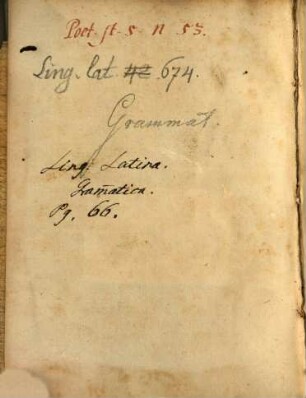 Poet. st. s. n 53.
Ling. lat 42 674.
Grammat.
Ling. Latina.
Gram̄atica.
Pg. 66.